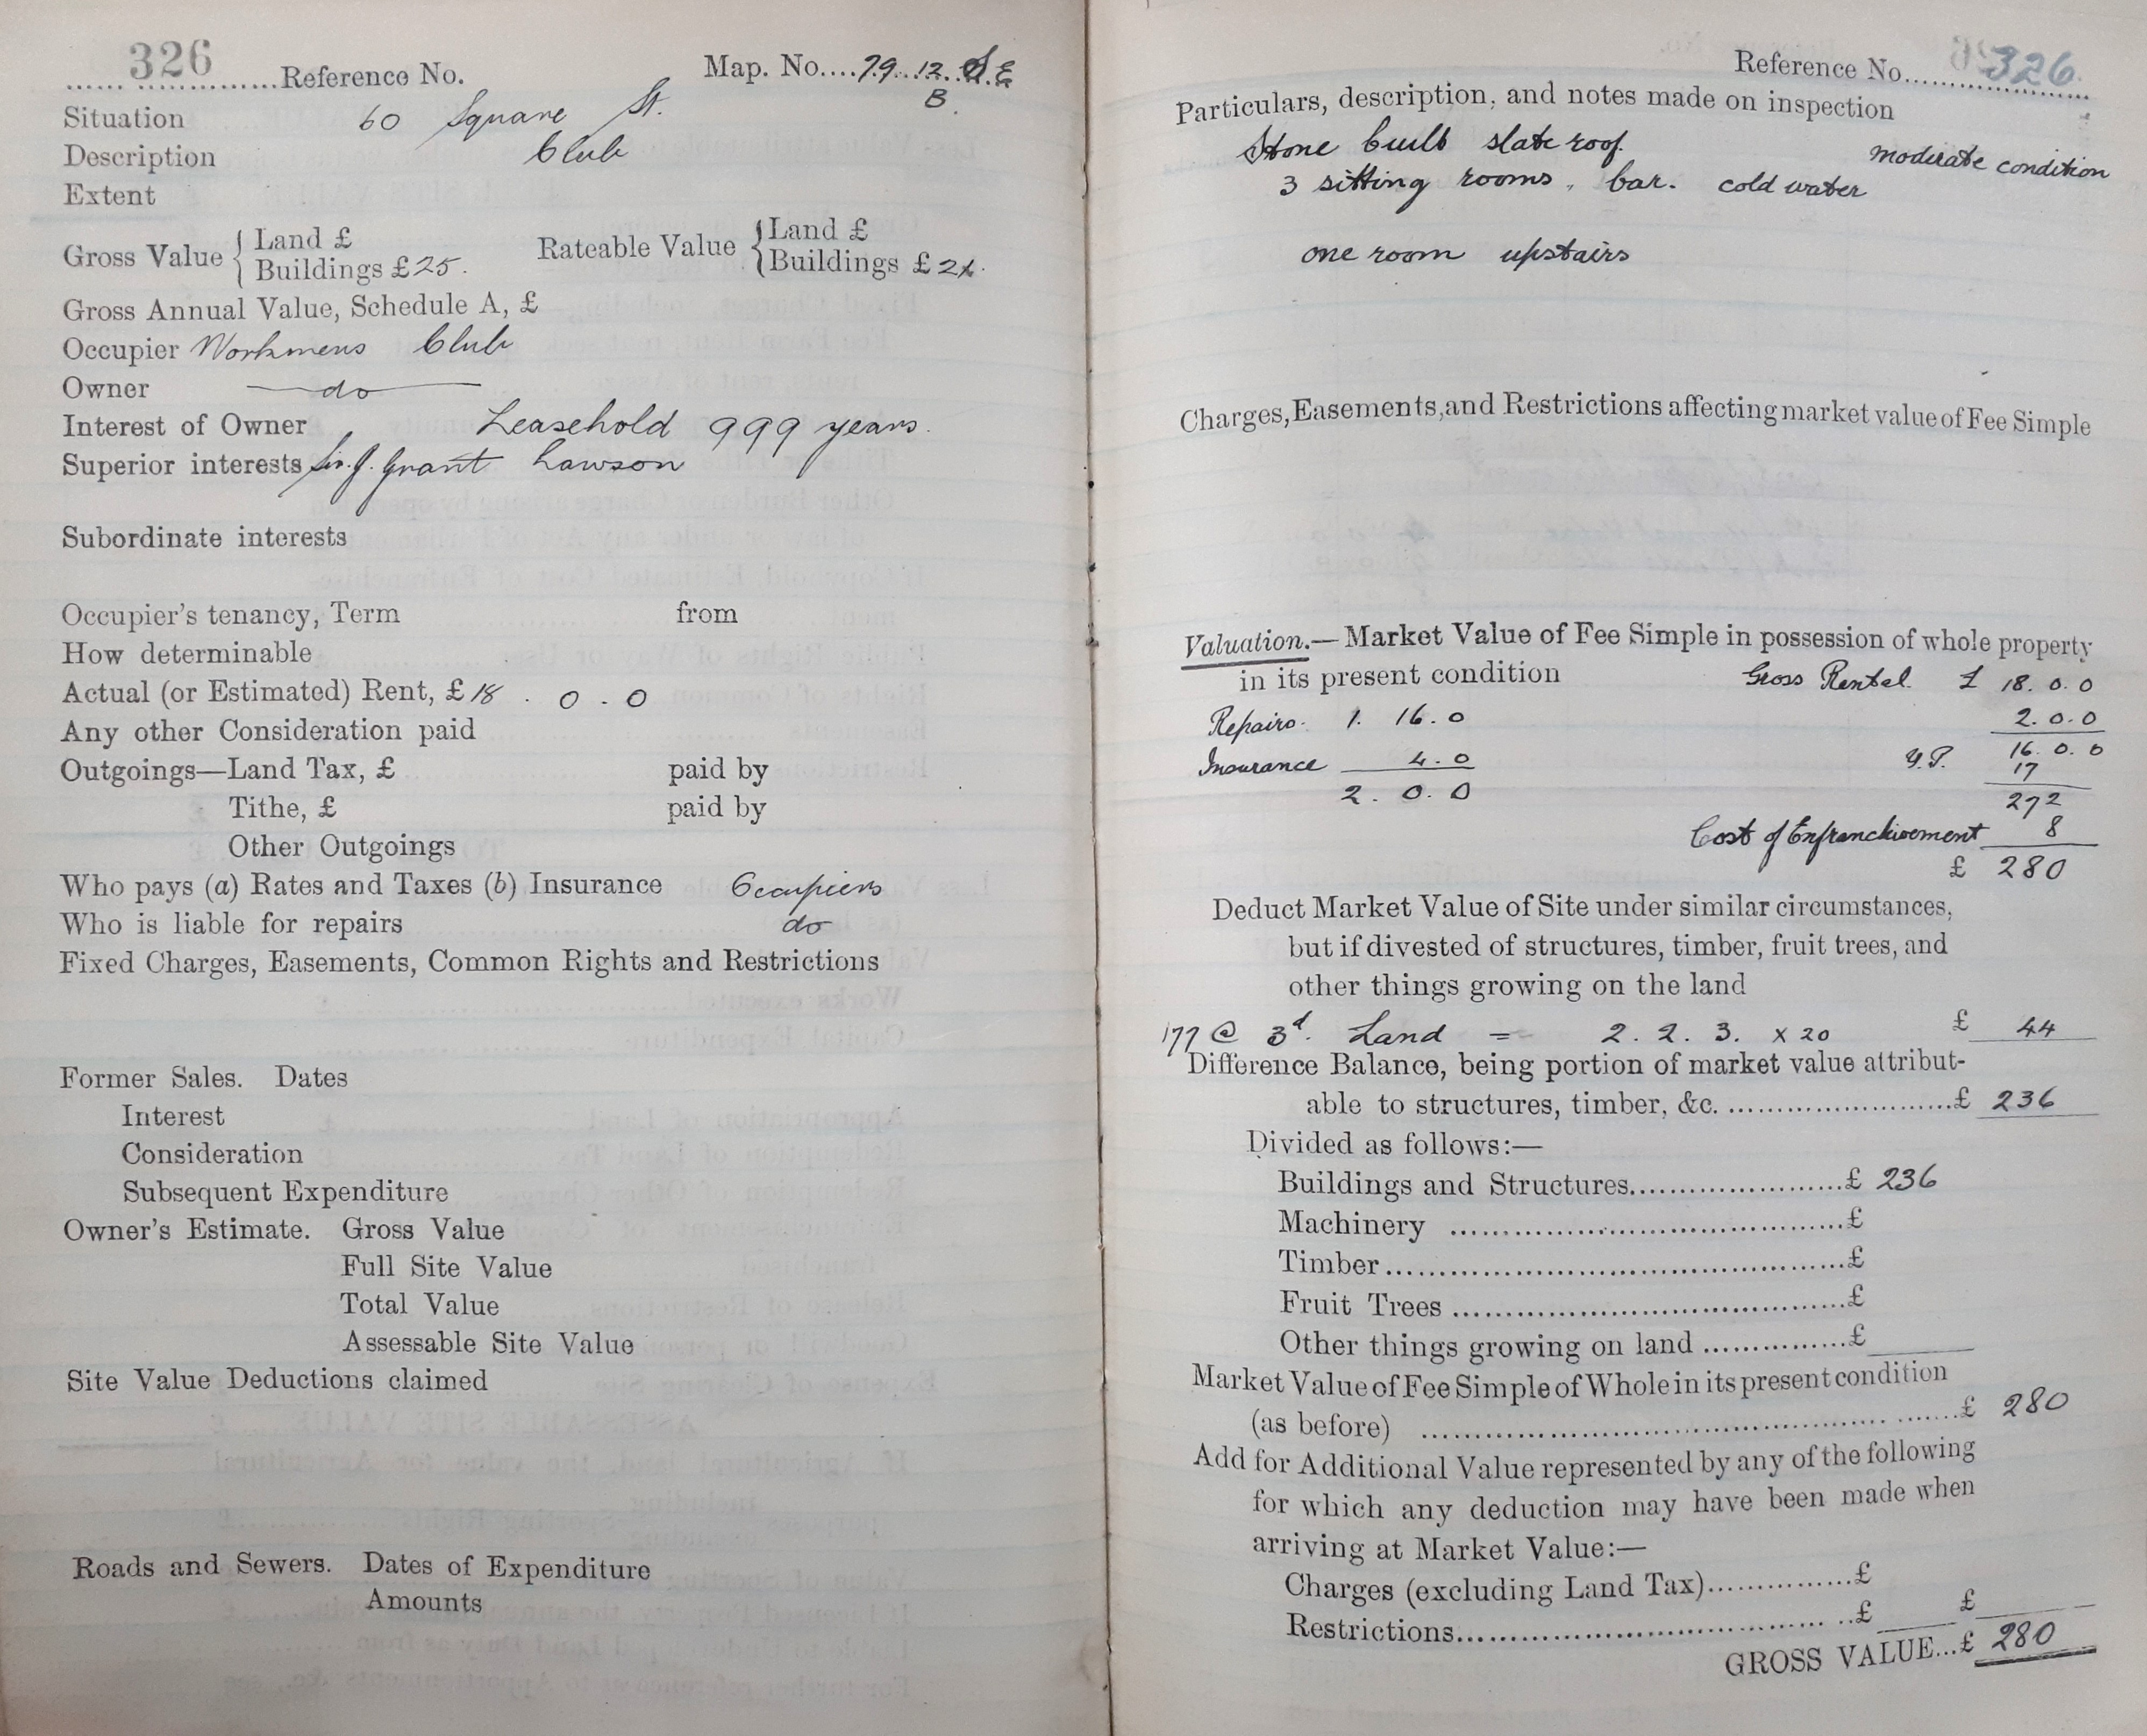 326 Reference No. Map. No. 79. 12. S.E
B.
Situation 60 Square St.
Description Club
Extent
Gross Value { Land £ Rateable Value { Land £
Buildings £ 25. Buildings £
Gross Annual Value, Schedule A, £
Occupier Workmens Club
Owner — do —
Interest of Owner Leasehold 999 years.
Superior interests Sir. J. Grant Lawson
Subordinate interests
Occupier's tenancy, Term from
How determinable
Actual (or Estimated) Rent, £ 18 . 0 . 0
Any other Consideration paid
Outgoings—Land Tax, £ paid by
Tithe, £ paid by
Other Outgoings
Who pays (a) Rates and Taxes (b) Insurance Occupiers
Who is liable for repairs do
Fixed Charges, Easements, Common Rights and Restrictions
Former Sales. Dates
Interest
Consideration
Subsequent Expenditure
Owner's Estimate. Gross Value
Full Site Value
Total Value
Assessable Site Value
Site Value Deductions claimed
Roads and Sewers. Dates of Expenditure
Amounts
Reference No. 326
Particulars, description, and notes made on inspection
Stone built slate roof. moderate condition
3 sitting rooms, bar. cold water
one room upstairs
Charges, Easements, and Restrictions affecting market value of Fee Simple
Valuation.— Market Value of Fee Simple in possession of whole property
in its present condition Gross Rental. £ 18. 0. 0
Repairs. 1. 16. 0 2. 0. 0
Insurance 4. 0 Y.P. 16. 0. 0
2. 0. 0 17
272
Cost of Enfranchisement 8
£ 280
Deduct Market Value of Site under similar circumstances,
but if divested of structures, timber, fruit trees, and
other things growing on the land
177 @ 3d. Land = 2. 2. 3. x 20 £ 44
Difference Balance, being portion of market value attribut-
able to structures, timber, &c. £ 236
Divided as follows:—
Buildings and Structures £ 236
Machinery £
Timber £
Fruit Trees £
Other things growing on land £
Market Value of Fee Simple of Whole in its present condition
(as before) £ 280
Add for Additional Value represented by any of the following
for which any deduction may have been made when
arriving at Market Value:—
Charges (excluding Land Tax) £
Restrictions £ £
GROSS VALUE...£ 280